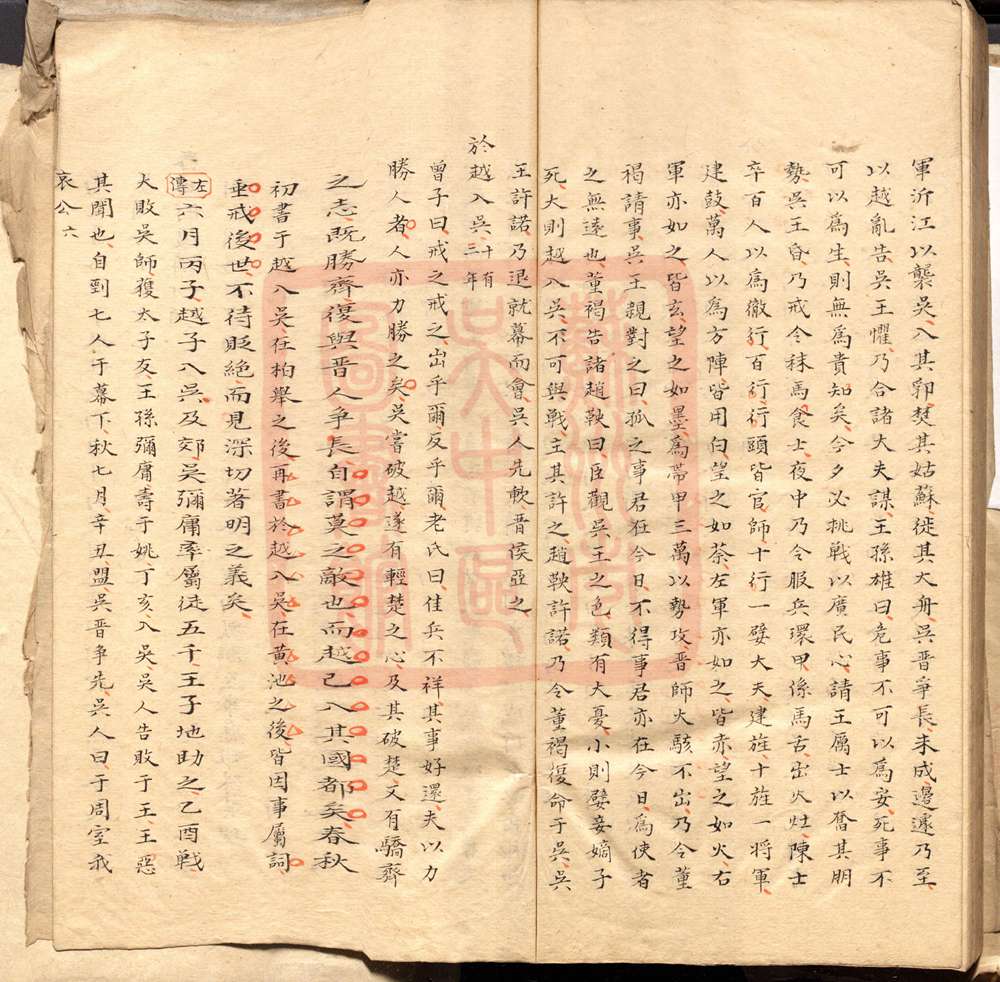 軍沂江以襲吳入其郛焚其姑蘇徙其大舟吳晉爭長未成邊遽乃至
以越亂告吳王懼乃合諸大夫謀王孫雄曰危事不可以爲安死事不
可以爲生則無爲貴知矣今夕必挑戰以廣民心請王厲士以奮其朋
勢吳王昏乃戒令秣馬食士夜中乃令服兵環甲係馬舌出火灶陳士
卒百人以爲徹行百行行頭皆官師十行一嬖大夫建旌十旌一將軍
建鼓萬人以為方陣皆用白望之如荼左軍亦如之皆赤望之如火右
軍亦如之皆玄望之如墨爲帶甲三萬以勢攻晉師大駭不出乃令董
褐請事吳王親對之曰孤之事君在今日不得事君亦在今日爲使者
之無遠也董褐告諸趙鞅曰臣觀吳王之色類有大憂小則嬖妾嫡子
死大則越入吳不可與戰主其許之趙鞅許諾乃令董褐復命于吳吳
王許諾乃退就幕而會吳人先軟晉侯亞之
於越入吳十有三年
曾子曰戒之戒之出乎爾反乎爾老氏曰佳兵不祥其事好還夫以力
勝人者人亦力勝之矣吳嘗破越遂有輕楚之心及其破楚又有驕齊
之志既勝齊復與晉人爭長自謂莫之敵也而越已入其國都矣春秋
初書于越入吳在柏舉之後再書於越入吳在黃池之後皆因事屬詞
垂戒後世不待貶絕而見深切著明之義矣
左傳六月丙子越子入吳及郊吳彌庸率屬徒五千王子地助之乙酉戰
大敗吳師獲太子友王孫彌庸壽于姚丁亥入吳吳人告敗于王王惡
其聞也自剄七人于幕下秋七月辛丑盟吳晉爭先吳人曰于周室我
哀公六